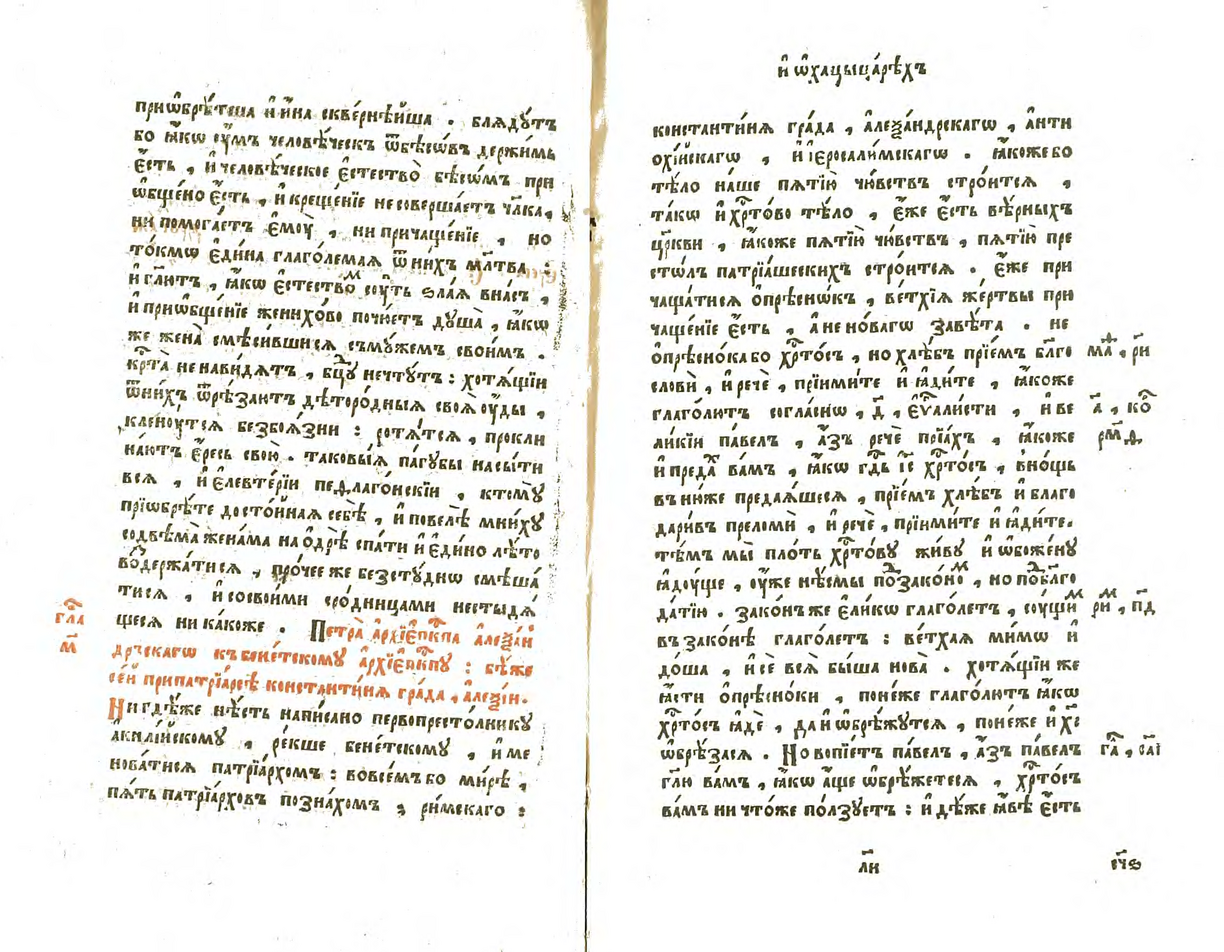 приѡбрѣ́тша и҆ и҆́на скве́рнѣйша . блядꙋ́тъ
бо ꙗ҆́кѡ ᲂу҆́мъ человѣ́ческъ ѿбѣ́сѡвъ держи́мь
є҆́сть , и҆ человѣ́ческое є҆стество̀ бѣсѡ́мъ при
ѡ҆бще́но є҆́сть , и҆ креще́нїе не соверша́етъ чл҃ка ,
ни помога́етъ є҆моу̀ , ни прича́щенїе , но
то́кмѡ є҆ди́на глаго́лемая ѿ ни́хъ мл҃тва :
и҆ гл҃итъ , ꙗ҆́кѡ є҆стествоⷨ сꙋ́ть ѕла́я вна́съ ,
и҆ приѡбще́нїе женихо́во почю́етъ дꙋша̀ , ꙗ҆́кѡ
же жена̀ смѣси́вшися съмꙋ́жемъ свои́мъ .
крⷭ҇та̀ не нави́дятъ , бцⷣꙋ нечтꙋ́тъ : хотѧ́щїи
ѿ ни́хъ ѿрѣ́заютъ дѣторо́дныя своѧ̀ ᲂу҆́ды ,
клену́тся безбоя́зни : ротѧ́тся , прокли
на́ютъ є҆́ресь свою̀ . таковы́я па́гꙋбы насы́ти
вся , и҆ є҆леѵте́рїи пефлаго́нскїи , ктомꙋ̀
прїѡбрѣ́те досто́йная себѣ̀ , и҆ повелѣ̀ мни́хꙋ
содвѣма̀ жена́ма на ѻ҆дрѣ̀ спа́ти и҆ є҆ди́но лѣ́то
вᲂдержа́тися , про́чее же безстꙋ́днѡ смѣша́
тися , и҆ сосвои́ми сро́дницами нестыдѧ́
щеся ника́коже . Петра̀ а҆рхїе҆пⷭ҇кпа а҆леѯа́н
гла
м҃
дрьскагѡ къ бене́тскомꙋ а҆рхїе҆пⷭ҇кпꙋ : бѣ́же
се́й при патрїа́рсѣ константи́ня гра́да , а҆леѯі́и .
Ниглѣ́же нѣ́сть напи́сано первопресто́лникꙋ
а҆кили́йскомꙋ , ре́кше бене́тскомꙋ , и҆ме
нова́тися патрїа́рхомъ : во все́мъ бо ми́рѣ ,
пѧ́ть патрїа́рховъ позна́хомъ , ри́мскаго :
и҆ ѡ҆хацыца́рѣхъ
константи́ня гра́да , а҆леѯа́ндрскагѡ , а҆нти
охі́йскагѡ , и҆ і҆еросали́мскагѡ . ꙗ҆́коже бо
тѣ́ло на́ше пѧтїю̀ чю́вствъ стро́ится ,
та́кѡ и҆ хрⷭ҇то́во тѣ́ло , є҆́же є҆́сть вѣ́рныхъ
цр҃кви , ꙗ҆́коже пѧтїю̀ чю́вствъ , пѧтїю̀ пре
сто́лъ патрїа́шескихъ стро́ится . є҆́же при
чаща́тися ѻ҆прѣсно́къ , ве́тхїя же́ртвы при
чаще́нїе є҆́сть , а҆ не но́вагѡ завѣ́та . не
ѻ҆прѣсно́ка бо хрⷭ҇то́съ , но хлѣ́бъ прїе́мъ бл҃го
мⷴ , ри
словѝ , и҆ речѐ , прїими́те и҆ ꙗ҆ди́те , ꙗ҆́коже
глаго́литъ согла́снѡ , д҃ , є҆ѵⷢ҇али́сти , и҆ ве
а҃ , коⷬ
ли́кїи па́велъ , а҆́зъ речѐ прїѧ́хъ , ꙗ҆́коже
рмⷴ
и҆ преда́хъ ва́мъ , ꙗ҆́кѡ гдⷭ҇ь і҆с҃ хрⷭ҇то́съ , вно́щь
въ ню́же предаѧ́шеся , прїе́мъ хлѣ́бъ и҆ благо
дари́въ преломѝ , и҆ речѐ , прїими́те и҆ ꙗ҆ди́те .
тѣ́мъ мы̀ пло́ть хрⷭ҇то́вꙋ жи́вꙋ и҆ ѡ҆боже́нꙋ
ꙗ҆дꙋ́ще , ᲂу҆же нѣ́смы позако́ноⷨ , но побл҃го
да́тїю . зако́нъ же є҆ли́кѡ глаго́летъ , сꙋ́щиⷨ
риⷨ , п҃д
въ зако́нѣ глаго́летъ : ве́тхая ми́мѡ и҆
до́ша , и҆ сѐ всѧ̀ бы́ша нова̀ . хотѧ́щїи же
ꙗ҆́сти ѻ҆прѣсно́ки , поне́же глаго́литъ ꙗ҆́кѡ
хрⷭ҇то́съ ꙗ҆дѐ , да и҆ ѡ҆брѣ́жꙋтся , поне́же и҆ хс҃
ѡ҆брѣ́зася . Но вопїе́тъ па́велъ , а҆́зъ па́велъ
га҃ , саі
гл҃ю ва́мъ , ꙗ҆́кѡ а҆́ще ѡ҆брѣ́жетеся , хрⷭ҇то́съ
ва́мъ ничто́же по́лзꙋетъ : и҆дѣ́же ꙗ҆́вѣ є҆́сть
ли
счѕ